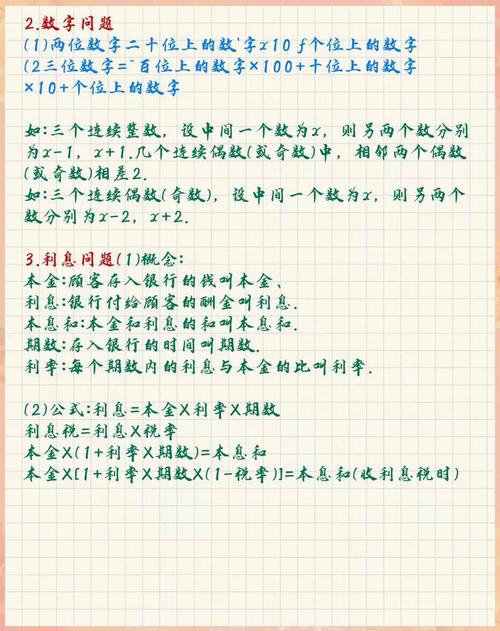 2.数字问题
(1)两位数字二十位上的数'字x10 f个位上的数字
(2三位数字="百位上的数字×100+十位上的数字
×10+个位上的数字
如:三个连续整数，设中间一个数为x，则另两个数分别
为x-1，x+1.几个连续偶数(或奇数)中，相邻两个偶数
(或奇数)相差2.
如:三个连续偶数(奇数)，设中间一个数为x，则另两个
数分别为x-2，x+2.
3.利息问题(1)概念:
本金:顾客存入银行的钱叫本金、
利息:银行付给顾客的酬金叫利息.
本息和:本金和利息的和叫本息和.
期数:存入银行的时间叫期数.
利率:每个期数内的利息与本金的比叫利率.
(2)公式:利息=本金X利率X期数
利息税=利息X税率
本金X(1+利率X期数)=本息和
本金X[1+利率X期数X(1-税率)]=本息和(收利息税时)